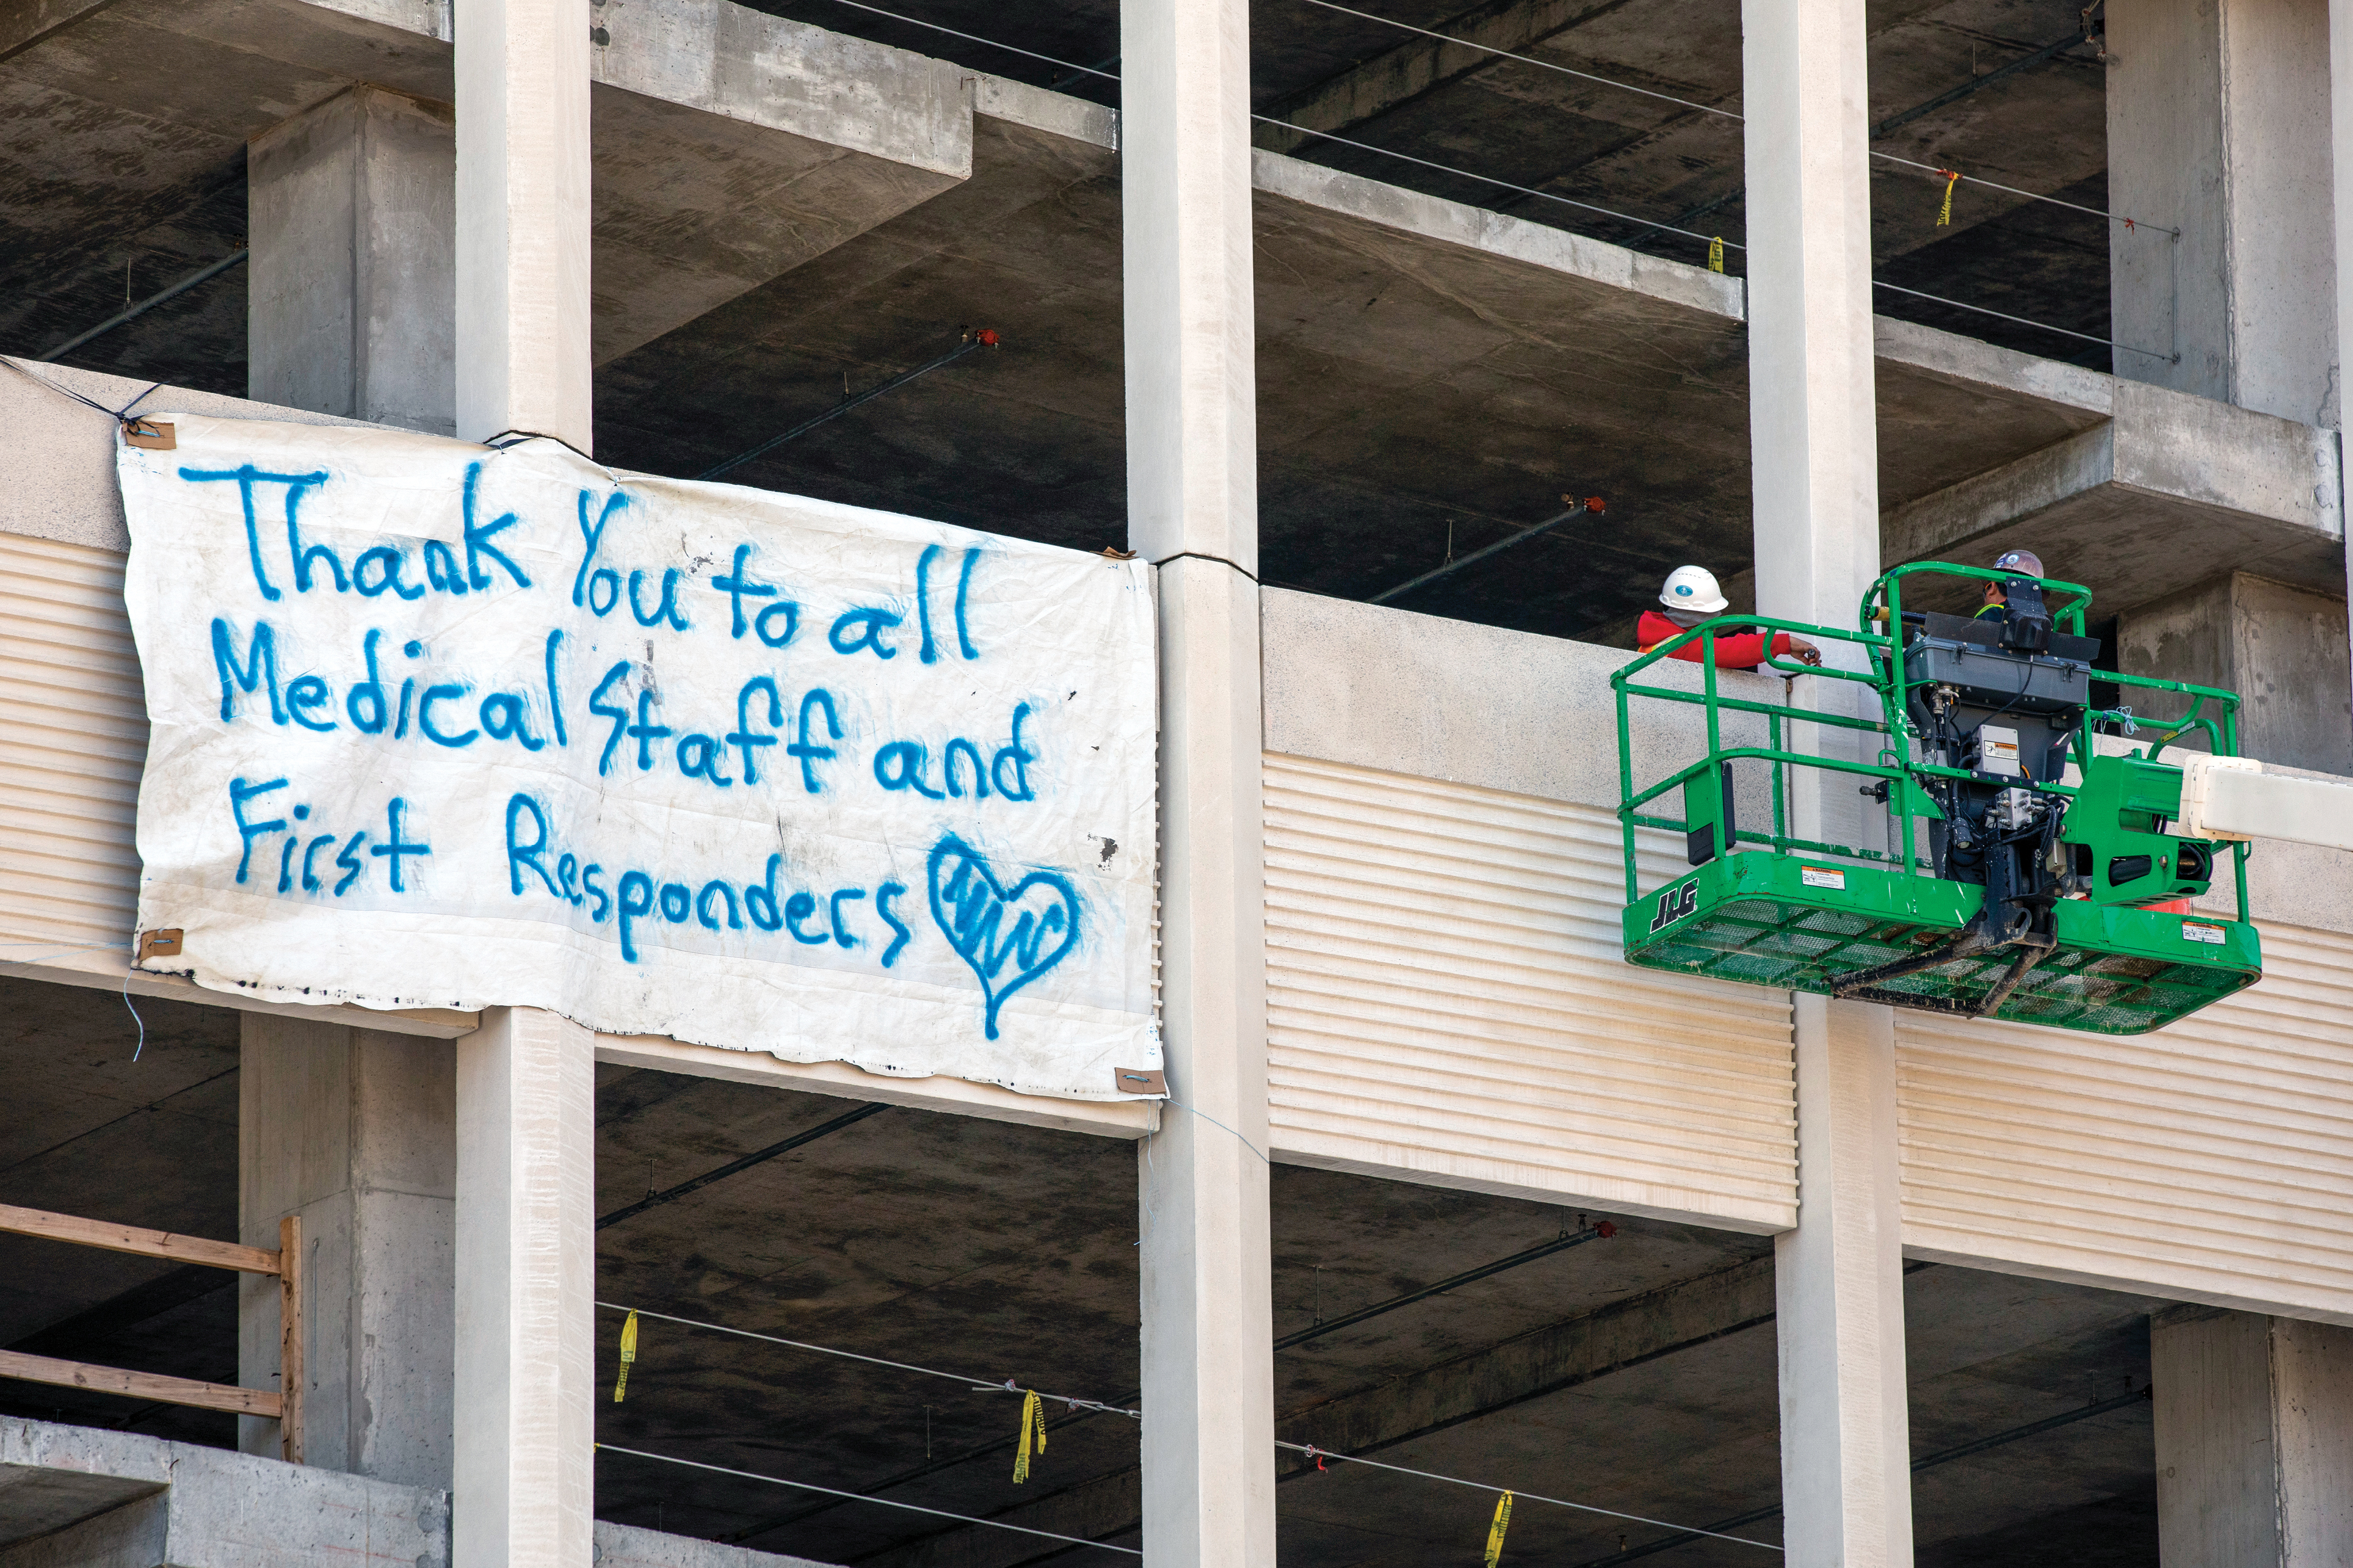 Thank You to all
Medical Staff and
First Responders
JLG